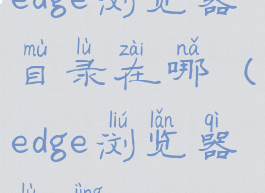 edge浏览器
mù lù zài nǎ
目录在哪(
liú lǎn qì
edge浏览器